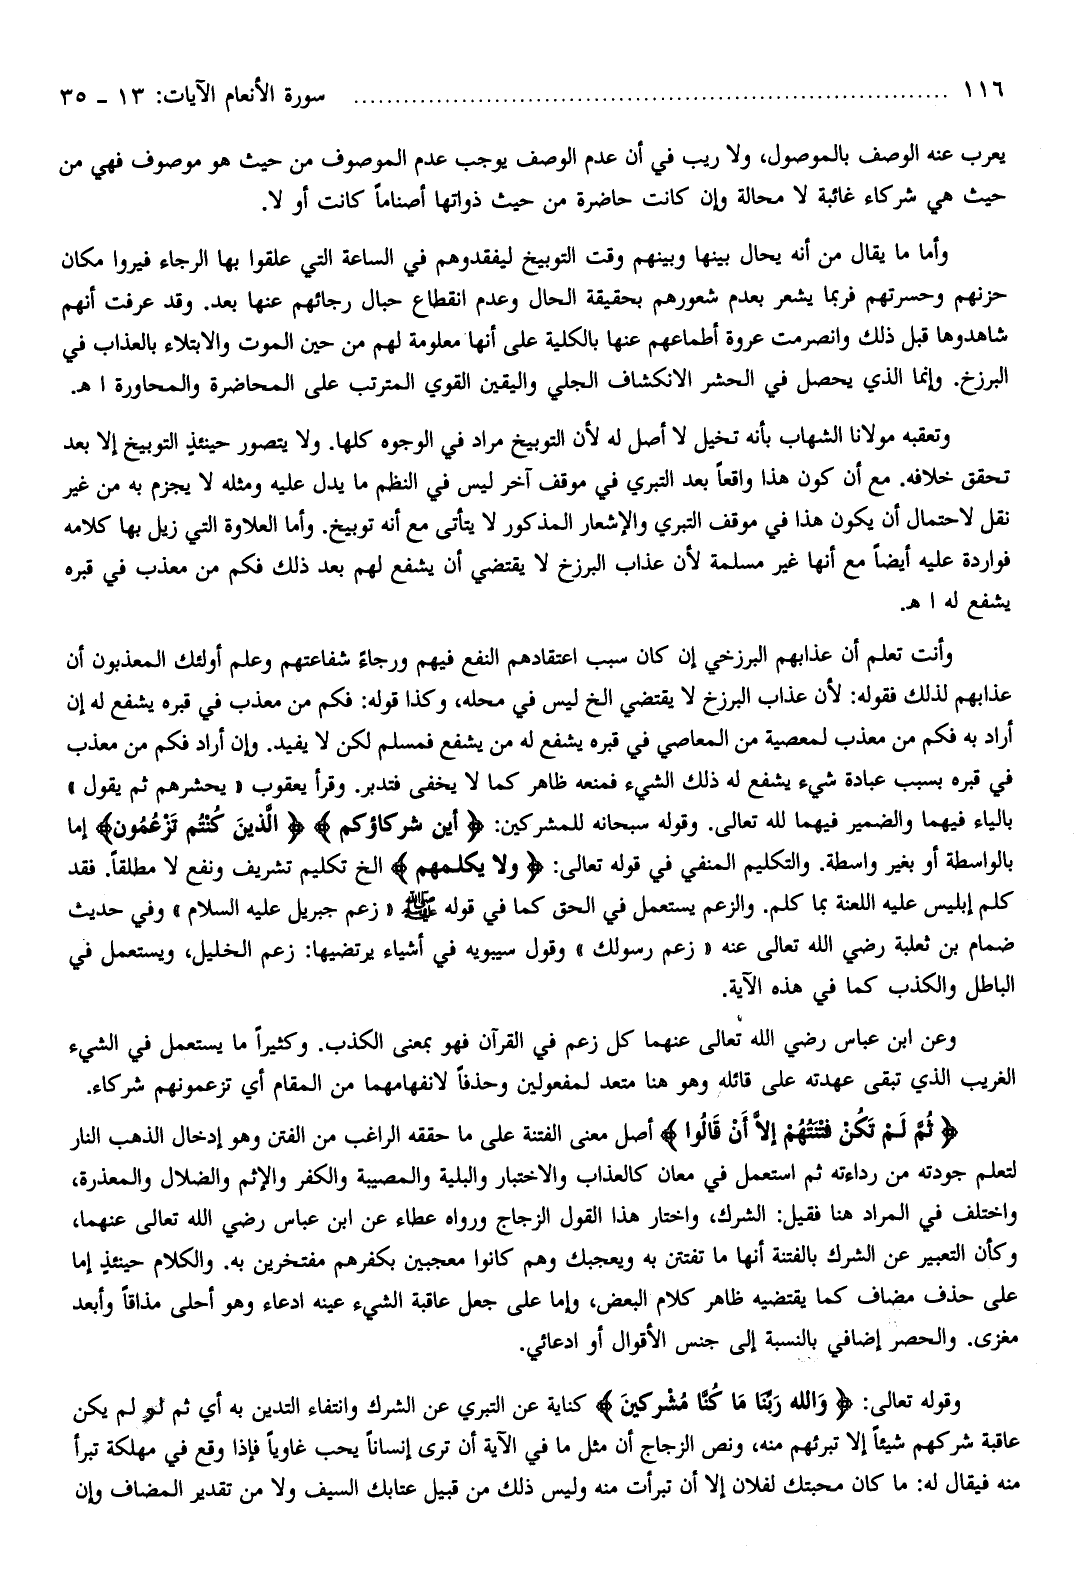 ١١٦ ........................................................................ سورة الأنعام الآيات: ١٣ - ٣٥
يعرب عنه الوصف بالموصول، ولا ريب في أن عدم الوصف يوجب عدم الموصوف من حيث هو موصوف فهي من
حيث هي شركاء غائبة لا محالة وإن كانت حاضرة من حيث ذواتها أصناماً كانت أو لا.
وأما ما يقال من أنه يحال بينها وبينهم وقت التوبيخ ليفقدوهم في الساعة التي علقوا بها الرجاء فيروا مكان
حزنهم وحسرتهم فربما يشعر بعدم شعورهم بحقيقة الحال وعدم انقطاع حبال رجائهم عنها بعد. وقد عرفت أنهم
شاهدوها قبل ذلك وانصرمت عروة أطماعهم عنها بالكلية على أنها معلومة لهم من حين الموت والابتلاء بالعذاب في
البرزخ. وإنما الذي يحصل في الحشر الانكشاف الجلي واليقين القوي المترتب على المحاضرة والمحاورة ا هـ.
وتعقبه مولانا الشهاب بأنه تخيل لا أصل له لأن التوبيخ مراد في الوجوه كلها. ولا يتصور حينئذٍ التوبيخ إلا بعد
تحقق خلافه. مع أن كون هذا واقعاً بعد التبري في موقف آخر ليس في النظم ما يدل عليه ومثله لا يجزم به من غير
نقل لاحتمال أن يكون هذا في موقف التبري والإشعار المذكور لا يتأتى مع أنه توبيخ. وأما العلاوة التي زيل بها كلامه
فواردة عليه أيضاً مع أنها غير مسلمة لأن عذاب البرزخ لا يقتضي أن يشفع لهم بعد ذلك فكم من معذب في قبره
يشفع له ا هـ.
وأنت تعلم أن عذابهم البرزخي إن كان سبب اعتقادهم النفع فيهم ورجاءً شفاعتهم وعلم أولئك المعذبون أن
عذابهم لذلك فقوله: لأن عذاب البرزخ لا يقتضي الخ ليس في محله، وكذا قوله: فكم من معذب في قبره يشفع له إن
أراد به فكم من معذب لمعصية من المعاصي في قبره يشفع له من يشفع فمسلم لكن لا يفيد. وإن أراد فكم من معذب
في قبره بسبب عبادة شيء يشفع له ذلك الشيء فمنعه ظاهر كما لا يخفى فتدبر. وقرأ يعقوب « يحشرهم ثم يقول »
بالياء فيهما والضمير فيهما لله تعالى. وقوله سبحانه للمشركين: ﴿ أين شركاؤكم ﴾ ﴿ الَّذينَ كُنْتُم تَزْعُمُون﴾ إما
بالواسطة أو بغير واسطة. والتكليم المنفي في قوله تعالى: ﴿ ولا يكلمهم ﴾ الخ تكليم تشريف ونفع لا مطلقاً. فقد
كلم إبليس عليه اللعنة بما كلم. والزعم يستعمل في الحق كما في قوله ﷺ « زعم جبريل عليه السلام » وفي حديث
ضمام بن ثعلبة رضي الله تعالى عنه « زعم رسولك » وقول سيبويه في أشياء يرتضيها: زعم الخليل، ويستعمل في
الباطل والكذب كما في هذه الآية.
وعن ابن عباس رضي الله تعالى عنهما كل زعم في القرآن فهو بمعنى الكذب. وكثيراً ما يستعمل في الشيء
الغريب الذي تبقى عهدته على قائله وهو هنا متعد لمفعولين وحذفاً لانفهامهما من المقام أي تزعمونهم شركاء.
﴿ ثُمَّ لَمْ تَكُنْ فَتْنَتُهُمْ إلاَّ أَنْ قَالُوا ﴾ أصل معنى الفتنة على ما حققه الراغب من الفتن وهو إدخال الذهب النار
لتعلم جودته من رداءته ثم استعمل في معان كالعذاب والاختبار والبلية والمصيبة والكفر والإثم والضلال والمعذرة،
واختلف في المراد هنا فقيل: الشرك، واختار هذا القول الزجاج ورواه عطاء عن ابن عباس رضي الله تعالى عنهما،
وكأن التعبير عن الشرك بالفتنة أنها ما تفتتن به ويعجبك وهم كانوا معجبين بكفرهم مفتخرين به. والكلام حينئذٍ إما
على حذف مضاف كما يقتضيه ظاهر كلام البعض، وإما على جعل عاقبة الشيء عينه ادعاء وهو أحلى مذاقاً وأبعد
مغزى. والحصر إضافي بالنسبة إلى جنس الأقوال أو ادعائي.
وقوله تعالى: ﴿ وَالله رَبِّنَا مَا كُنَّا مُشْركينَ ﴾ كناية عن التبري عن الشرك وانتفاء التدين به أي ثم لو لم يكن
عاقبة شركهم شيئاً إلا تبرئهم منه، ونص الزجاج أن مثل ما في الآية أن ترى إنساناً يحب غاوياً فإذا وقع في مهلكة تبرأ
منه فيقال له: ما كان محبتك لفلان إلا أن تبرأت منه وليس ذلك من قبيل عتابك السيف ولا من تقدير المضاف وإن